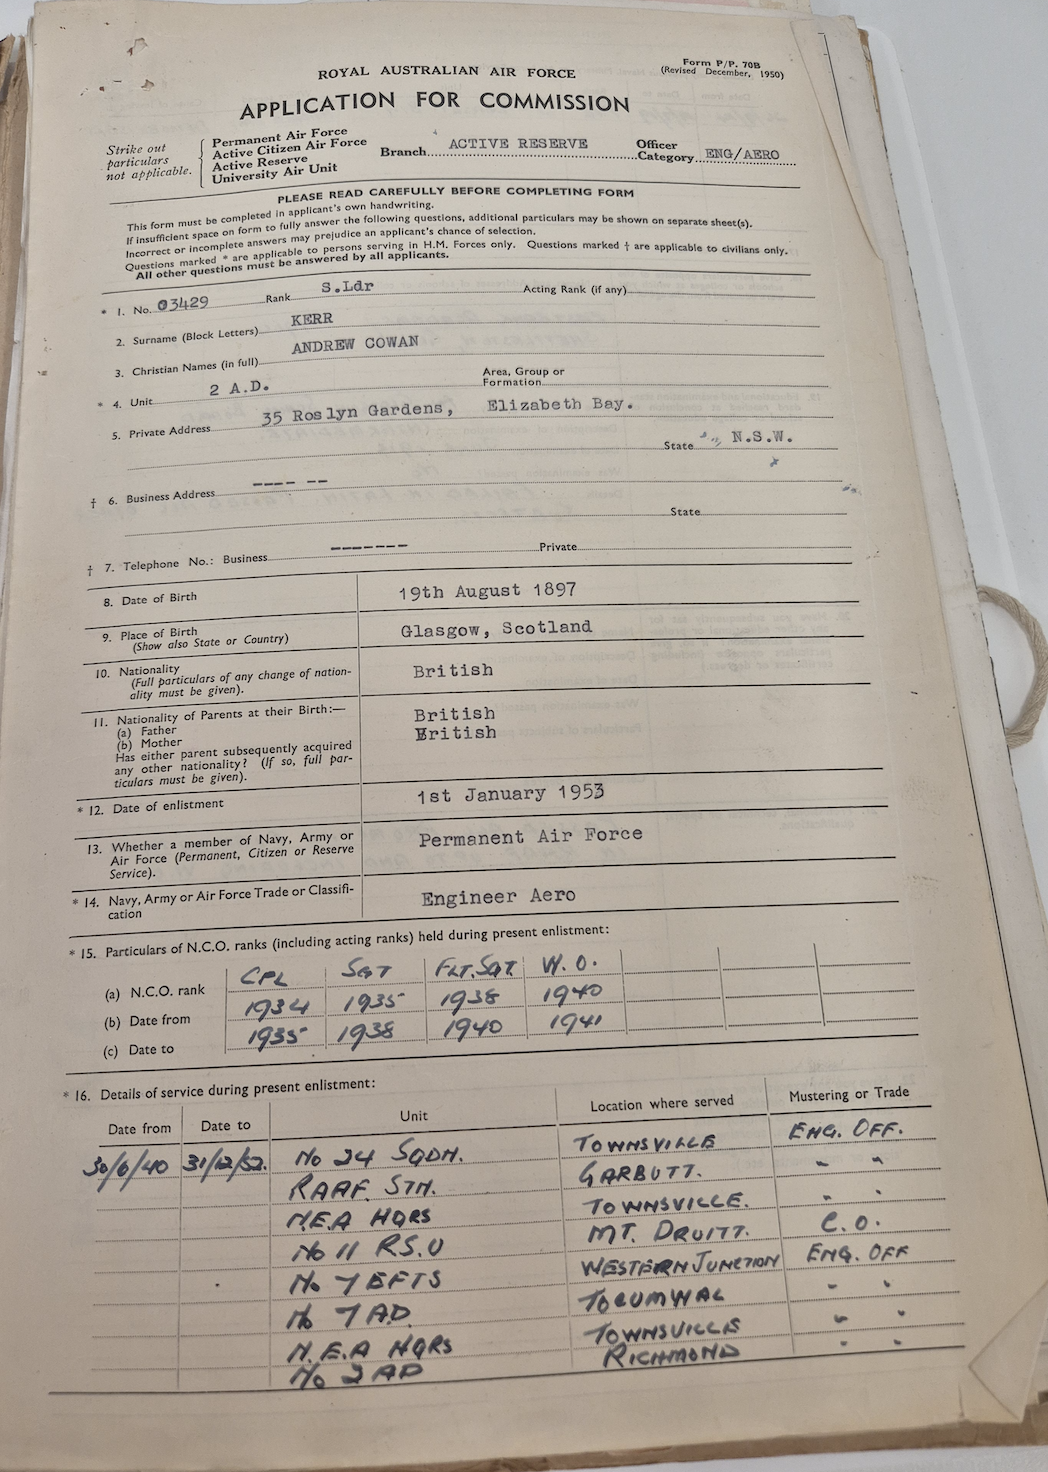 Form P/P. 70B
(Revised December, 1950)
ROYAL AUSTRALIAN AIR FORCE
APPLICATION FOR COMMISSION
Strike out particulars not applicable.
Permanent Air Force
Active Citizen Air Force
Active Reserve
University Air Unit
Branch ACTIVE RESERVE Officer Category ENG/AERO
PLEASE READ CAREFULLY BEFORE COMPLETING FORM
This form must be completed in applicant's own handwriting.
If insufficient space on form to fully answer the following questions, additional particulars may be shown on separate sheet(s).
Incorrect or incomplete answers may prejudice an applicant's chance of selection.
Questions marked * are applicable to persons serving in H.M. Forces only. Questions marked † are applicable to civilians only.
All other questions must be answered by all applicants.
* 1. No. 03429 Rank S.Ldr Acting Rank (if any)
2. Surname (Block Letters) KERR
3. Christian Names (in full) ANDREW COWAN
* 4. Unit 2 A.D. Area, Group or Formation
5. Private Address 35 Roslyn Gardens, Elizabeth Bay.
State N.S.W.
† 6. Business Address ---- --
State
† 7. Telephone No.: Business ------- Private
8. Date of Birth 19th August 1897
9. Place of Birth Glasgow, Scotland
(Show also State or Country)
10. Nationality British
(Full particulars of any change of nation-
ality must be given).
11. Nationality of Parents at their Birth:—
(a) Father British
(b) Mother British
Has either parent subsequently acquired
any other nationality? (If so, full par-
ticulars must be given).
* 12. Date of enlistment 1st January 1953
13. Whether a member of Navy, Army or Permanent Air Force
Air Force (Permanent, Citizen or Reserve
Service).
* 14. Navy, Army or Air Force Trade or Classifi- Engineer Aero
cation
* 15. Particulars of N.C.O. ranks (including acting ranks) held during present enlistment:
(a) N.C.O. rank CPL SGT FLT.SGT W.O.
(b) Date from 1934 1935 1938 1940
(c) Date to 1935 1938 1940 1941
* 16. Details of service during present enlistment:
Date from Date to Unit Location where served Mustering or Trade
30/6/40 31/12/52. No 24 SQDN. TOWNSVILLE ENG. OFF.
RAAF. STN. GARBUTT. " "
N.E.A HQRS TOWNSVILLE. " "
No 11 R.S.U MT. DRUITT. C.O.
No 7 EFTS WESTERN JUNCTION ENG. OFF
No 7 A.D. TOCUMWAL " "
N.E.A HQRS TOWNSVILLE " "
No 2 AD RICHMOND " "